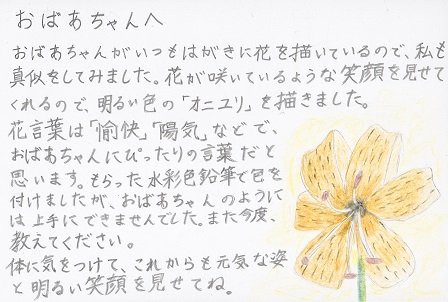 おばあちゃんへ
おばあちゃんがいつもはがきに花を描いているので、私も
真似をしてみました。花が咲いているような笑顔を見せて
くれるので、明るい色の「オニユリ」を描きました。
花言葉は「愉快」「陽気」などで、
おばあちゃんにぴったりの言葉だと
思います。もらった水彩色鉛筆で色を
付けましたが、おばあちゃんのように
は上手にできませんでした。また今度、
教えてください。
体に気をつけて、これからも元気な姿
と明るい笑顔を見せてね。